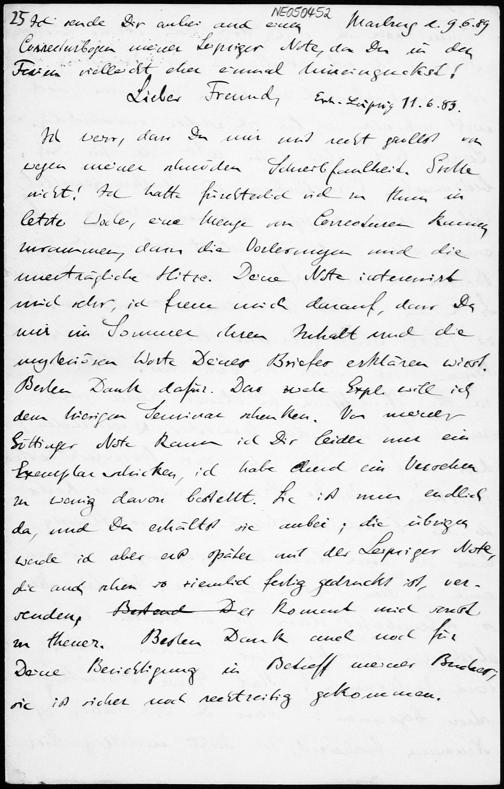 NE050452
25 Ich sende Dir anbei auch einen Marburg d. 9.6.89
Correcturbogen meiner Leipziger Note, da Du in den
Ferien vielleicht eher einmal hineinguckst!
Lieber Freund, Leipzig 11.6.89.
Ich weiss, dass Du mir mit recht grollst von
wegen meiner schnöden Schreibfaulheit. Grolle
nicht! Ich hatte fürchterlich viel zu thun in
letzter Woche, eine Menge von Correcturen kamen
zusammen, dazu die Vorlesungen und die
unerträgliche Hitze. Deine Note interessirt
mich sehr, ich freue mich darauf, dass Du
mir im Sommer ihren Inhalt und die
mysteriösen Worte Deines Briefes erklären wirst.
Besten Dank dafür. Das zweite Expl. will ich
dem hiesigen Seminar schenken. Von meiner
Göttinger Note kann ich Dir leider nur ein
Exemplar schicken, ich habe durch ein Versehen
zu wenig davon bestellt. Sie ist nun endlich
da, und Du erhältst sie anbei; die übrigen
werde ich aber erst später mit der Leipziger Note,
die auch schon so ziemlich fertig gedruckt ist, ver-
senden. Der kommt mich sonst
zu theuer. Besten Dank auch noch für
Deine Berichtigung in Betreff meiner Bücher,
sie ist sicher noch rechtzeitig gekommen.